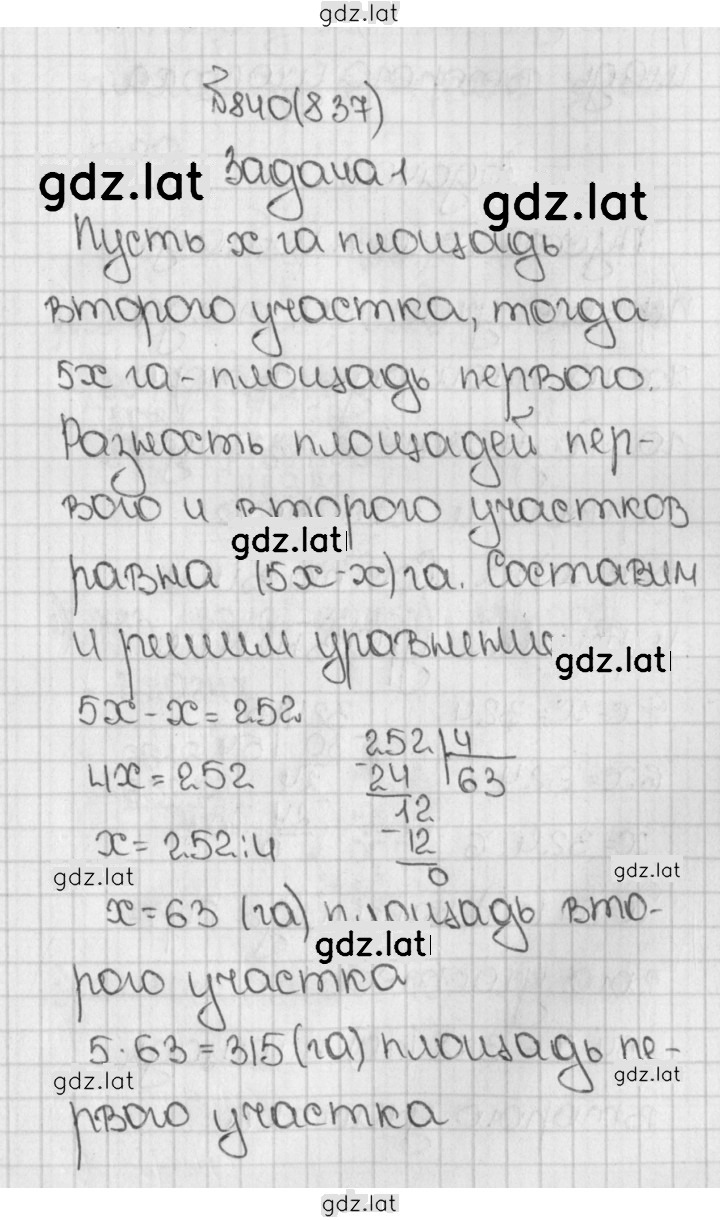 gdz.lat
№840(837)
gdz.lat Задача 1 gdz.lat
Пусть x га площадь
второго участка, тогда
5x га - площадь первого.
Разность площадей пер-
вого и второго участков
gdz.lat
равна (5x-x) га. Составим
и решим уравнение:
gdz.lat
5x - x = 252
252 4
4x = 252
- 24 63
12
x = 252:4
- 12
0
gdz.lat gdz.lat
x = 63 (га) площадь вто-
gdz.lat
рого участка
5 · 63 = 315 (га) площадь пе-
gdz.lat gdz.lat
рвого участка
gdz.lat